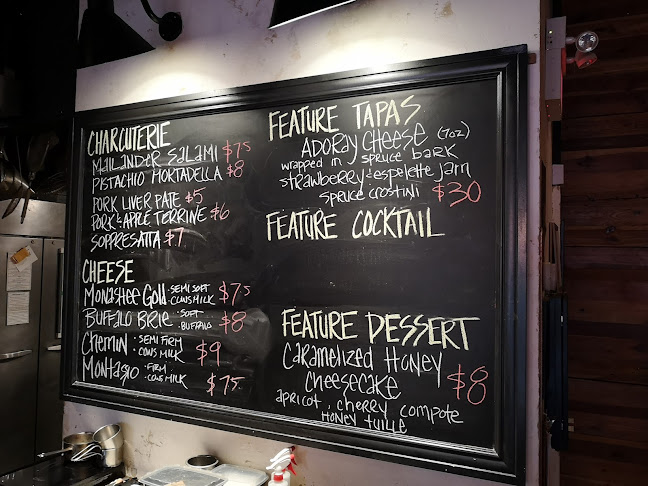 CHARCUTERIE
MAILANDER SALAMI $7.5
PISTACHIO MORTADELLA $8
PORK LIVER PATE $5
PORK & APPLE TERRINE $6
SOPPRESATTA $7
CHEESE
MONASHEE Gold · SEMI SOFT · COWS MILK $7.5
BUFFALO BRIE · SOFT · BUFFALO $8
Chemin · SEMI FIRM · COWS MILK $9
MONTASIO · FIRM · COWS MILK $7.5
FEATURE TAPAS
ADORAY CHEESE (7oz)
wrapped in spruce bark
strawberry & espelette jam
spruce crostini $30
FEATURE COCKTAIL
FEATURE DESSERT
CARAMELIZED HONEY
CHEESECAKE $8
apricot, cherry compote
HONEY tuille